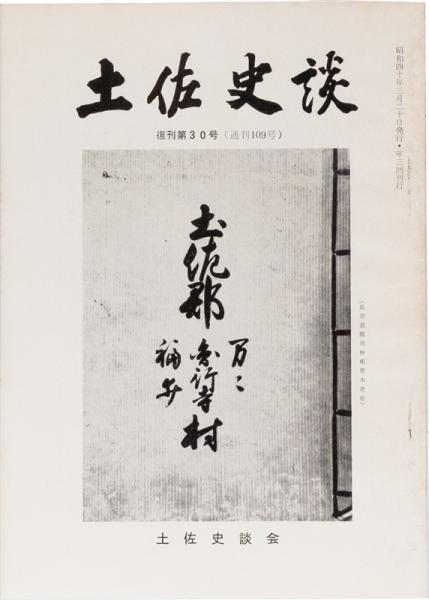 土佐史談
復刊第30号(通刊109号)
昭和四十年三月二十日発行・年三回刊行
土佐郡
万々
秦行寺村
福井
(長宗我部地検帳原本表紙)
土佐史談会